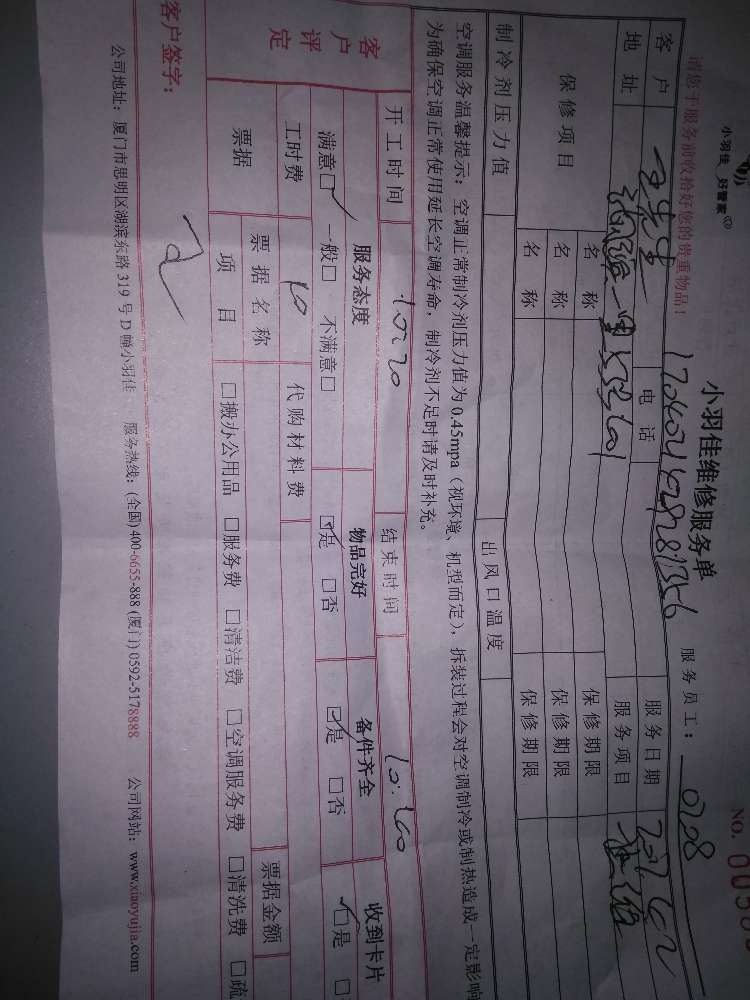 小羽佳 好管家
NO. 005
请您于服务前收给好您的贵重物品!
小羽佳维修服务单
服务员工:
客户 王先生 电话 服务日期
地址 服务项目
保修项目 名称 保修期限
名称 保修期限
名称 保修期限
制冷剂压力值 出风口温度
空调服务温馨提示:空调正常制冷剂压力值为0.45mpa(视环境、机型而定),拆装过程会对空调制冷或制热造成一定影响
为确保空调正常使用延长空调寿命,制冷剂不足时请及时补充。
开工时间 10:20 结束时间 10:40
客户评定 服务态度 物品完好 备件齐全 收到卡片
满意☑ 一般□ 不满意□ ☑是 □否 ☑是 □否 ☑是 □
工时费 代购材料费
票据 票据名称 票据金额
项目 □搬办公用品 □服务费 □清洁费 □空调服务费 □清洗费 □疏
客户签字:
公司地址:厦门市思明区湖滨东路319号D幢小羽佳 服务热线:(全国)400-6655-888 (厦门)0592-5178888 公司网站:www.xiaoyujia.com